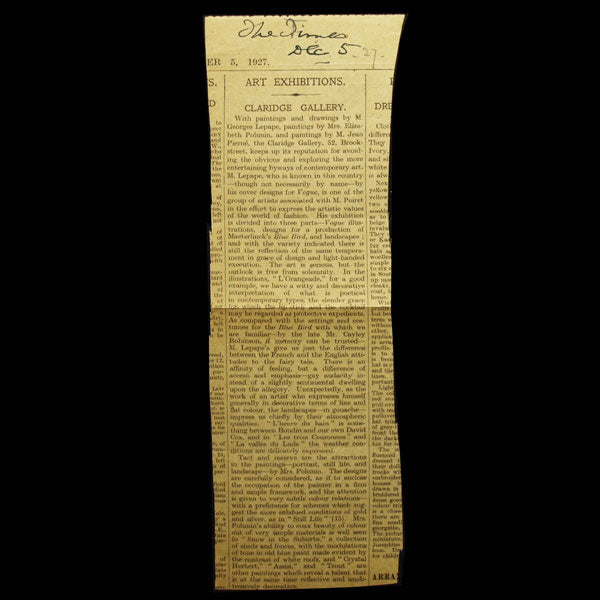 The Times
Dec 5. 27.
ER 5, 1927.
ART EXHIBITIONS.
CLARIDGE GALLERY.
With paintings and drawings by M.
Georges Lepape, paintings by Mrs. Eliza-
beth Polunin, and paintings by M. Jean
Pierné, the Claridge Gallery, 52, Brook-
street, keeps up its reputation for avoid-
ing the obvious and exploring the more
entertaining byways of contemporary art.
M. Lepape, who is known in this country
—though not necessarily by name—by
his cover designs for Vogue, is one of the
group of artists associated with M. Poiret
in the effort to express the artistic values
of the world of fashion. His exhibition
is divided into three parts—Vogue illus-
trations, designs for a production of
Maeterlinck's Blue Bird, and landscapes;
and with the variety indicated there is
still the reflection of the same tempera-
ment in grace of design and light-handed
execution. The art is serious, but the
outlook is free from solemnity. In the
illustrations, "L'Orangeade," for a good
example, we have a witty and decorative
interpretation of what is poetical
in contemporary types, the slender grace
for which the lip stick and the cocktail
may be regarded as protective expedients.
As compared with the settings and cos-
tumes for the Blue Bird with which we
are familiar—by the late Mr. Cayley
Robinson, if memory can be trusted—
M. Lepape's give us just the difference
between the French and the English atti-
tudes to the fairy tale. There is an
affinity of feeling, but a difference of
accent and emphasis—gay audacity in-
stead of a slightly sentimental dwelling
upon the allegory. Unexpectedly, as the
work of an artist who expresses himself
generally in decorative terms of line and
flat colour, the landscapes—in gouache—
impress us chiefly by their atmospheric
qualities. "L'heure du bain" is some-
thing between Boudin and our own David
Cox, and in "Les trois Couronnes" and
"La vallée du Lude" the weather con-
ditions are delicately expressed.
Tact and reserve are the attractions
in the paintings—portrait, still life, and
landscape—by Mrs. Polunin. The designs
are carefully considered, as if to enclose
the occupation of the painter in a firm
and simple framework, and the attention
is given to very subtle colour relations—
with a preference for schemes which sug-
gest the more subdued conditions of gold
and silver, as in "Still Life" (15). Mrs.
Polunin's ability to coax beauty of colour
out of very simple materials is well seen
in "Snow in the Suburbs," a collection
of sheds and fences, with the modulations
of tone in old blue paint made evident by
the contrast of white roofs, and "Crystal
Herbert," "Assisi," and "Trout" are
other paintings which reveal a talent that
is at the same time reflective and unob-
trusively decorative.